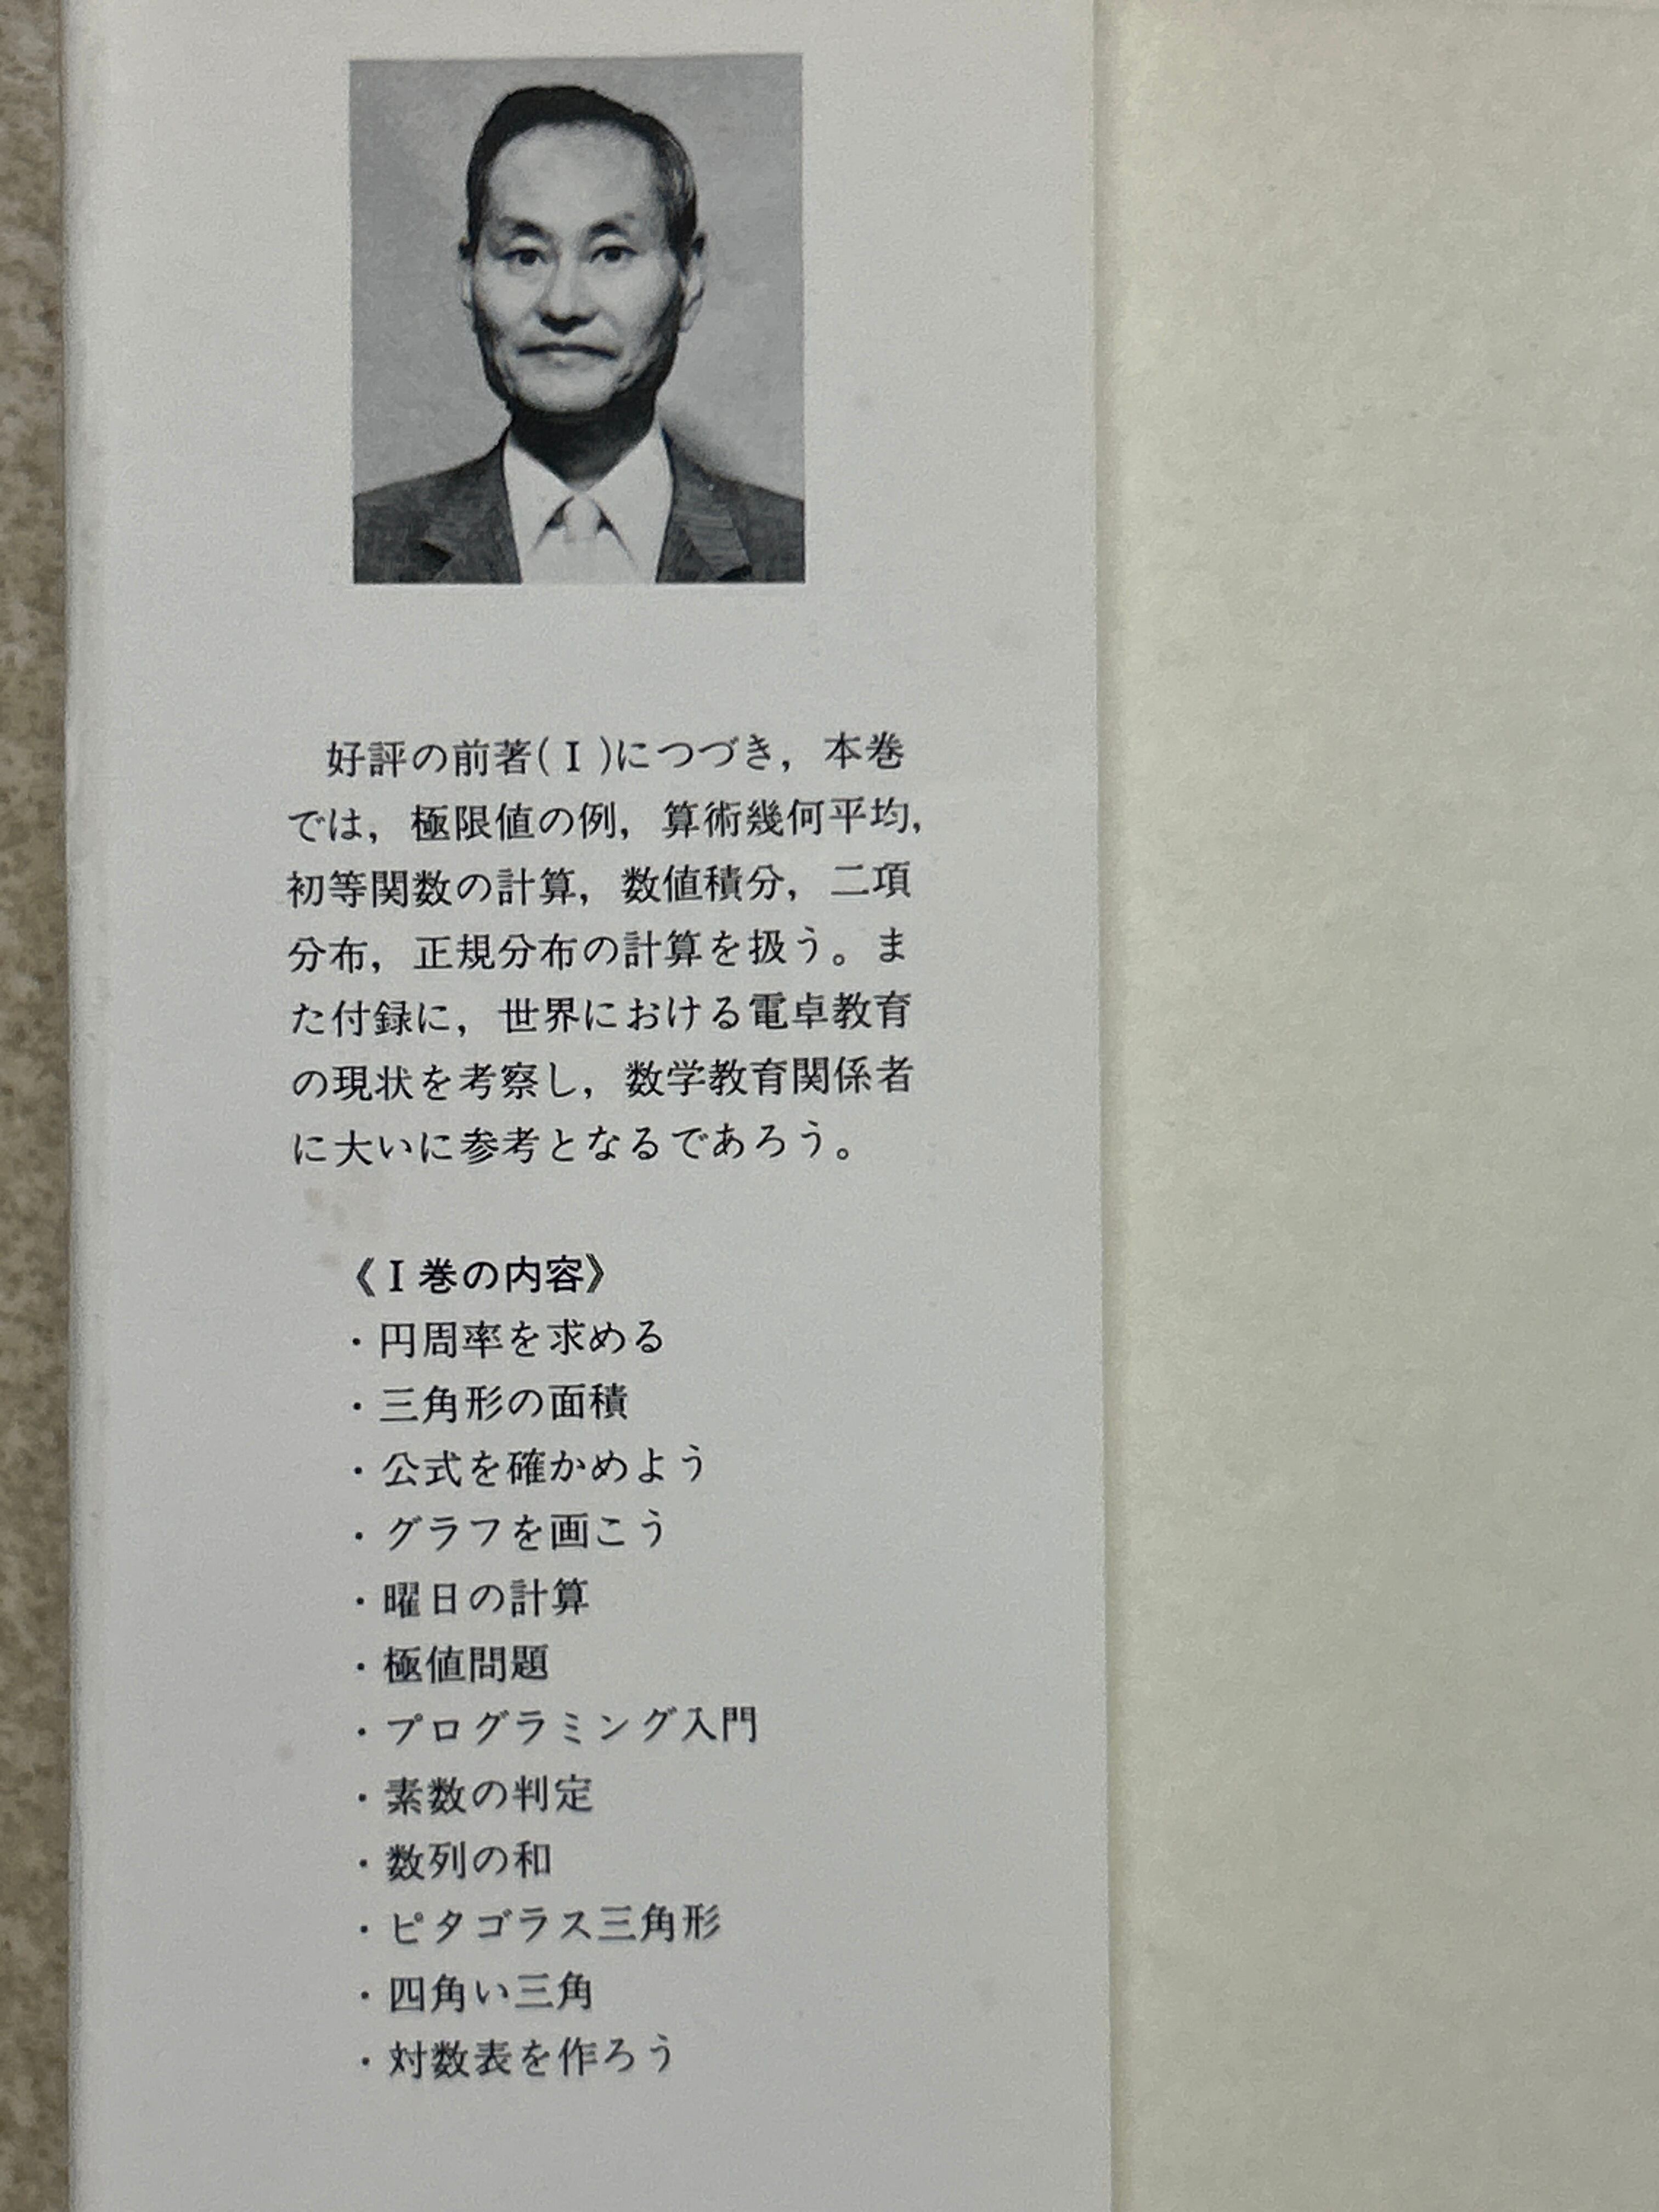 好評の前著(Ⅰ)につづき，本巻
では，極限値の例，算術幾何平均，
初等関数の計算，数値積分，二項
分布，正規分布の計算を扱う。ま
た付録に，世界における電卓教育
の現状を考察し，数学教育関係者
に大いに参考となるであろう。
《Ⅰ巻の内容》
・円周率を求める
・三角形の面積
・公式を確かめよう
・グラフを画こう
・曜日の計算
・極値問題
・プログラミング入門
・素数の判定
・数列の和
・ピタゴラス三角形
・四角い三角
・対数表を作ろう